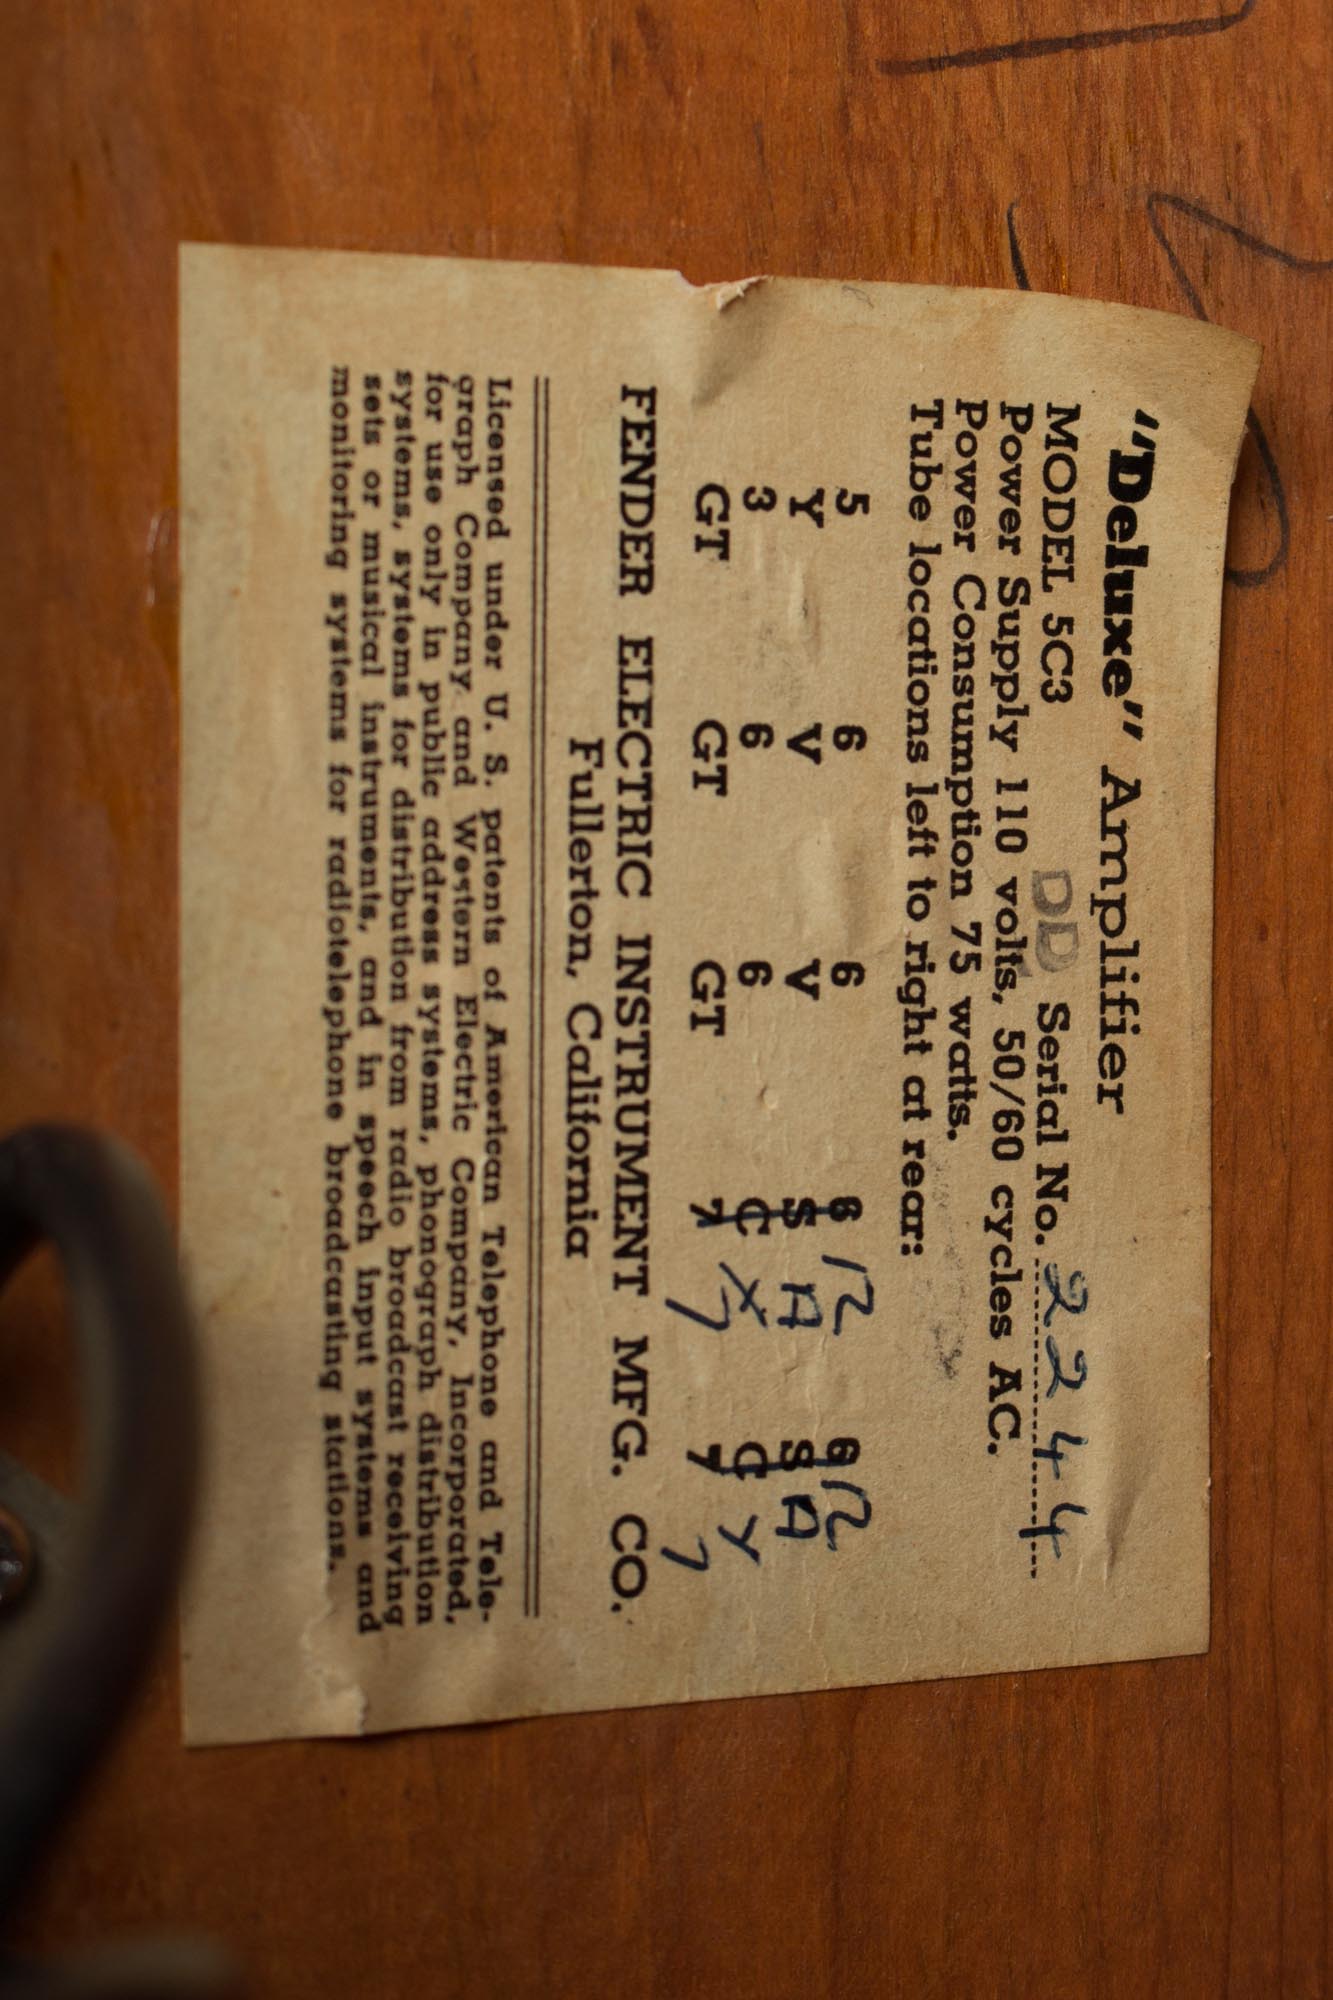 "Deluxe" Amplifier
MODEL 5C3 DD Serial No. 2244
Power Supply 110 volts, 50/60 cycles AC.
Power Consumption 75 watts.
Tube locations left to right at rear:
5 6 6 6 12 6 12
Y V V S A S A
3 6 6 C X C Y
GT GT GT 7 7 7 7
FENDER ELECTRIC INSTRUMENT MFG. CO.
Fullerton, California
Licensed under U. S. patents of American Telephone and Tele-
graph Company and Western Electric Company, Incorporated,
for use only in public address systems, phonograph distribution
systems, systems for distribution from radio broadcast receiving
sets or musical instruments, and in speech input systems and
monitoring systems for radiotelephone broadcasting stations.